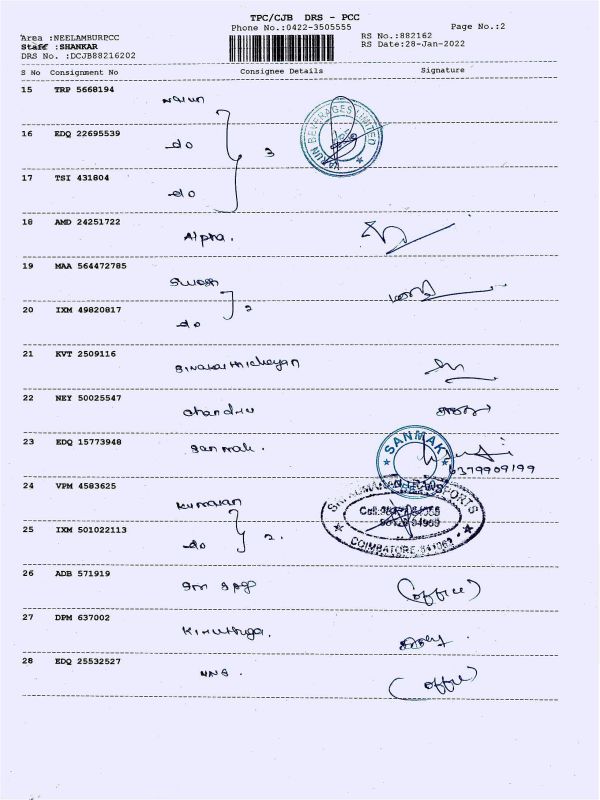 TPC/CJB DRS - PCC
Phone No.:0422-3505555
Page No.:2
Area :NEELAMBURPCC
Staff :SHANKAR
DRS No. :DCJB88216202
RS No.:882162
RS Date:28-Jan-2022
S No Consignment No Consignee Details Signature
15 TRP 5668194
Varun
VARUN BEVERAGES LIMITED
16 EDQ 22695539
do 3
17 TSI 431804
do
18 AMD 24251722
Alpha.
19 MAA 564472785
20 IXM 49820817
do 2
21 KVT 2509116
22 NEY 50025547
23 EDQ 15773948
Sanmak.
SANMAK
6379909199
24 VPM 4583625
Kumaran
TRANSPORTS
COIMBATORE
25 IXM 501022113
do 2.
26 ADB 571919
(office)
27 DPM 637002
Kiruthiga.
28 EDQ 25532527
(office)